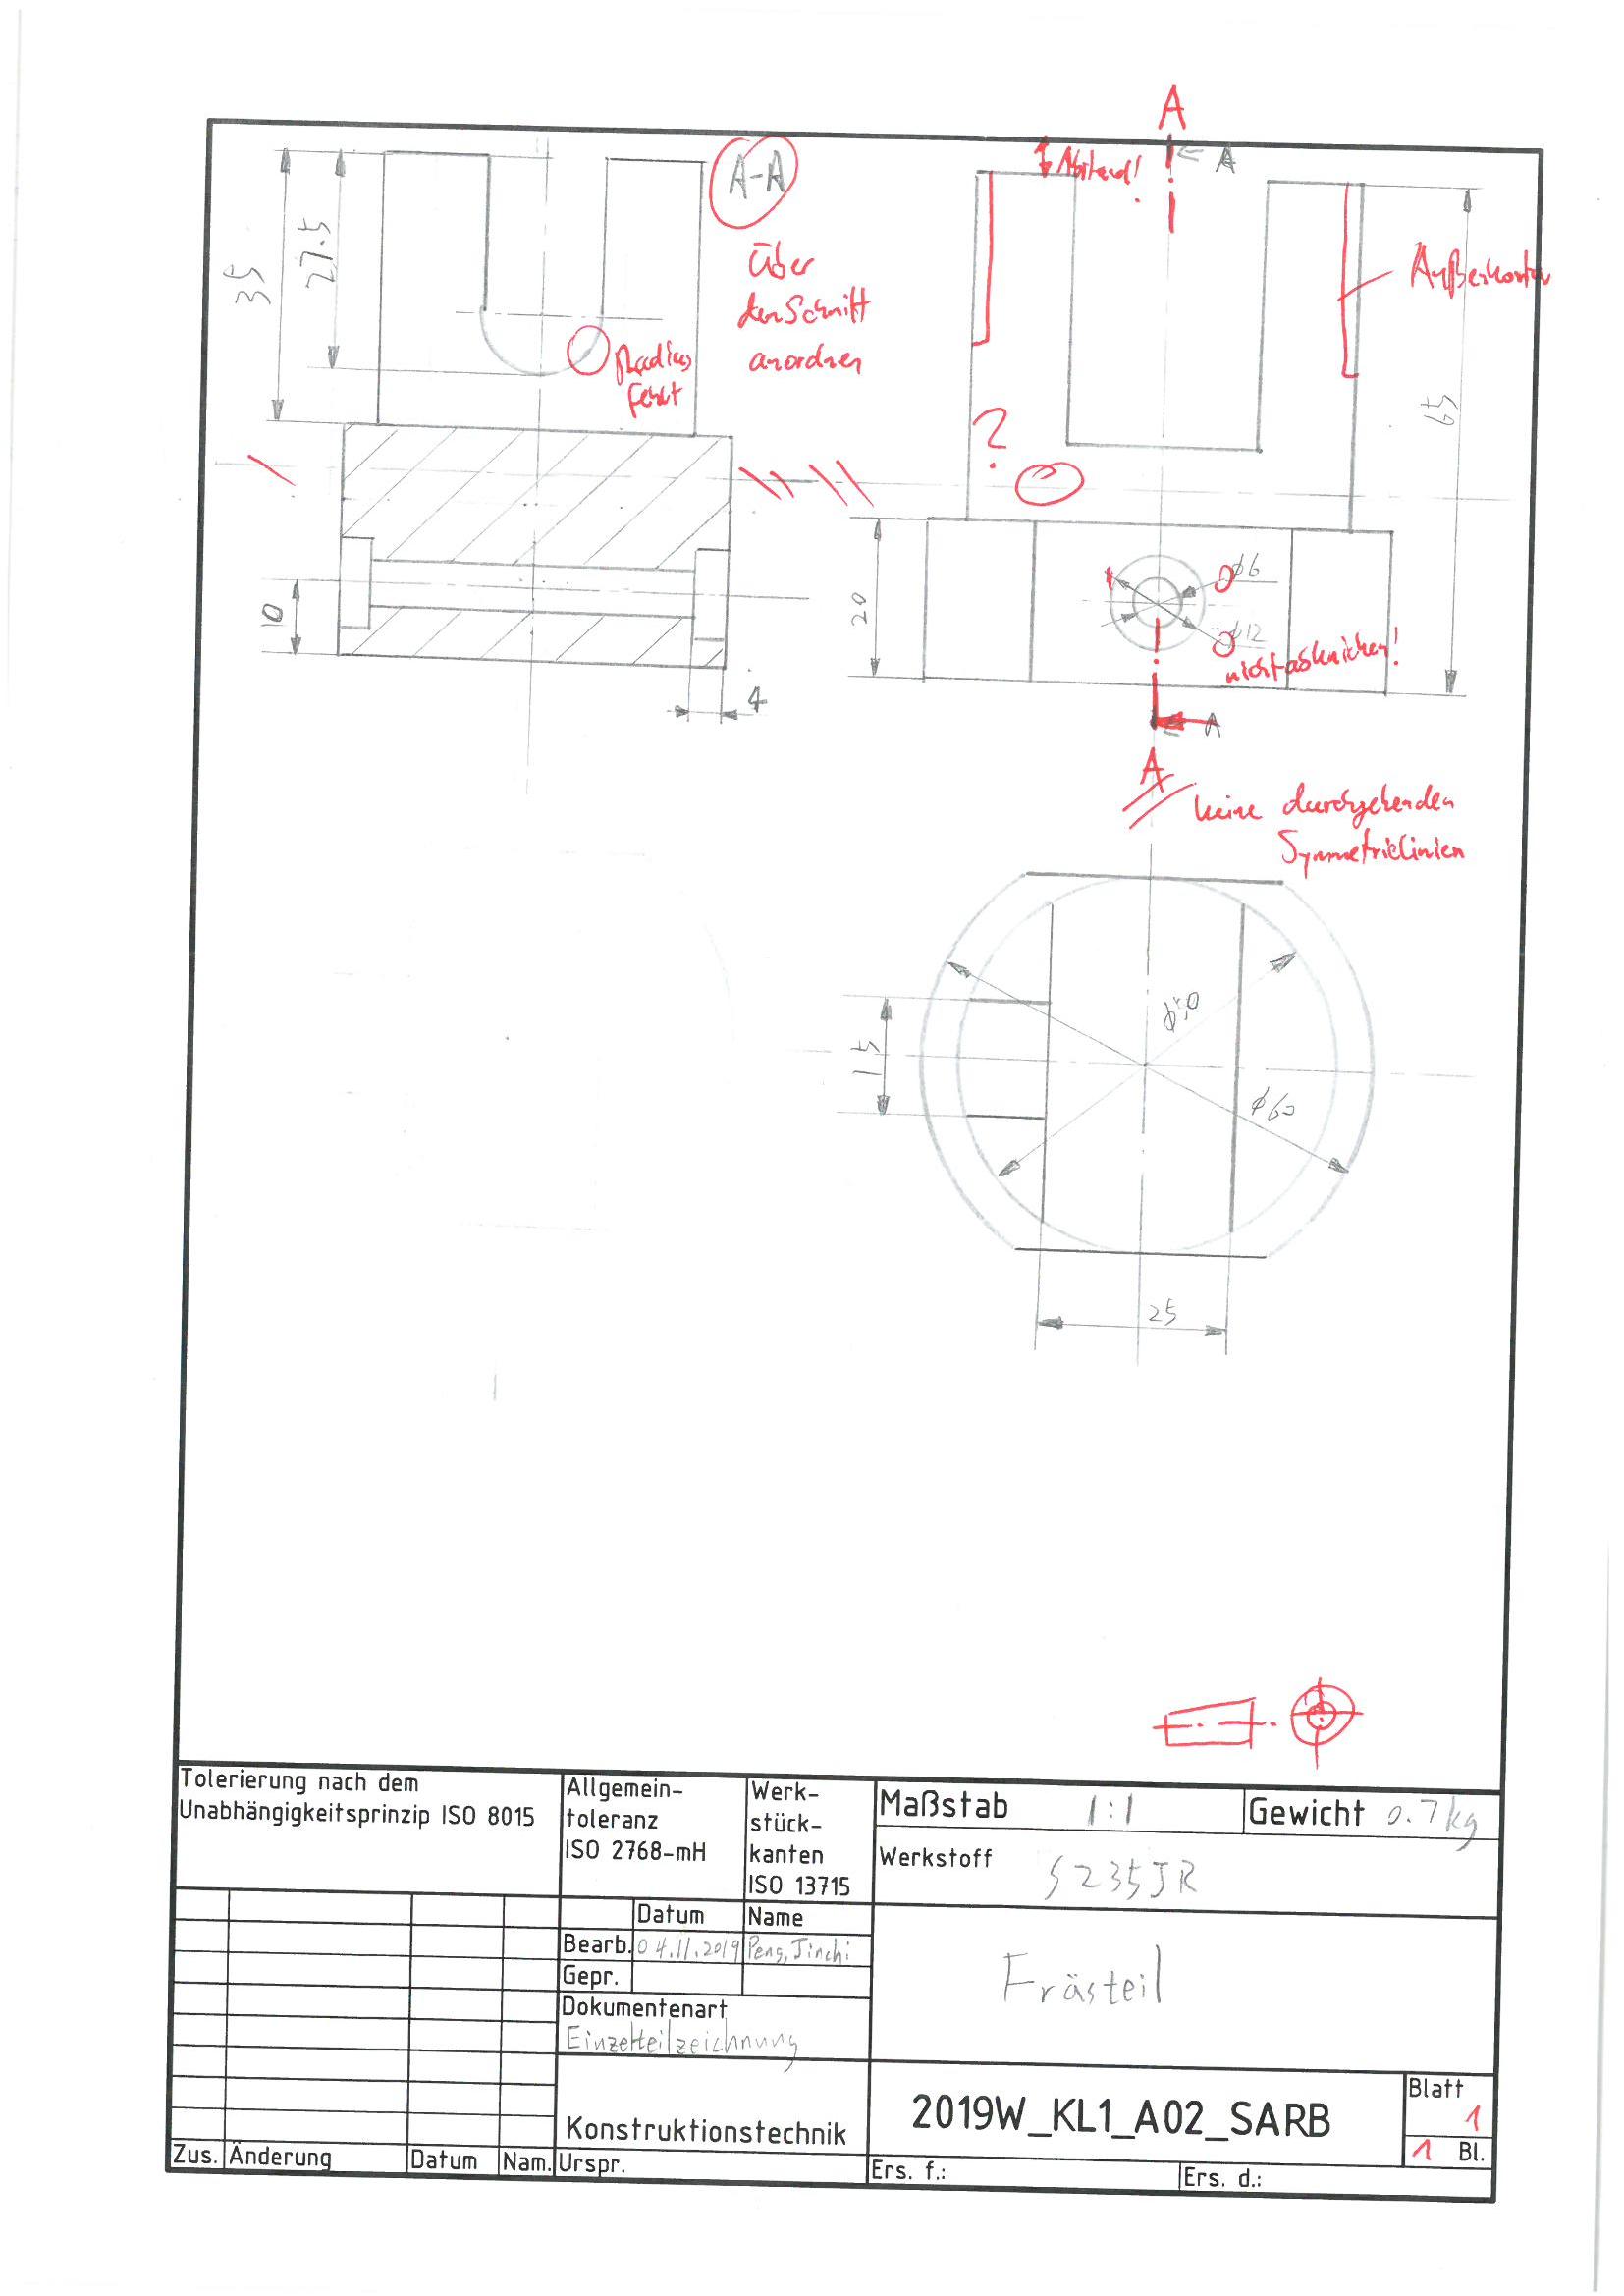 A
A-A
Abstand!
← A
35
27.5
Über
den Schnitt
anordnen
Außenkontur
Radius
fehlt
65
?
10
4
20
ϕ6
ϕ12
nicht abknicken!
← A
A
keine durchgehenden
Symmetrielinien
15
ϕ50
ϕ60
25
Tolerierung nach dem
Unabhängigkeitsprinzip ISO 8015
Allgemein-
toleranz
ISO 2768-mH
Werk-
stück-
kanten
ISO 13715
Maßstab 1:1
Gewicht 0.7kg
Werkstoff S235JR
Datum Name
Bearb. 04.11.2019 Peng, Jinchi
Gepr.
Dokumentenart
Einzelteilzeichnung
Frästeil
Konstruktionstechnik
2019W_KL1_A02_SARB
Blatt
1
1 Bl.
Zus. Änderung Datum Nam. Urspr.
Ers. f.: Ers. d.: